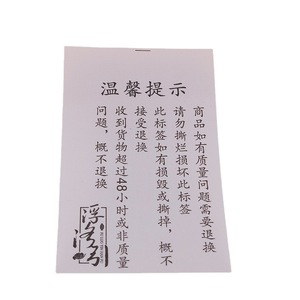 温馨提示
商品如有质量问题需要退换
请勿撕烂损坏此标签
此标签如有损毁或撕掉，概不
接受退换
收到货物超过48小时或非质量
问题，概不退换